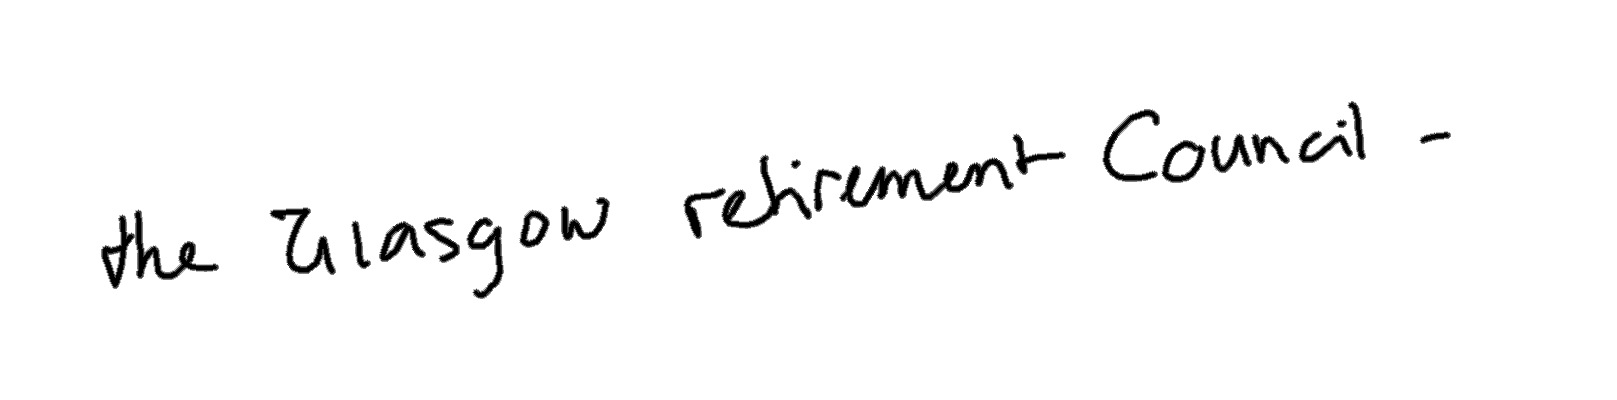 the Glasgow retirement Council -